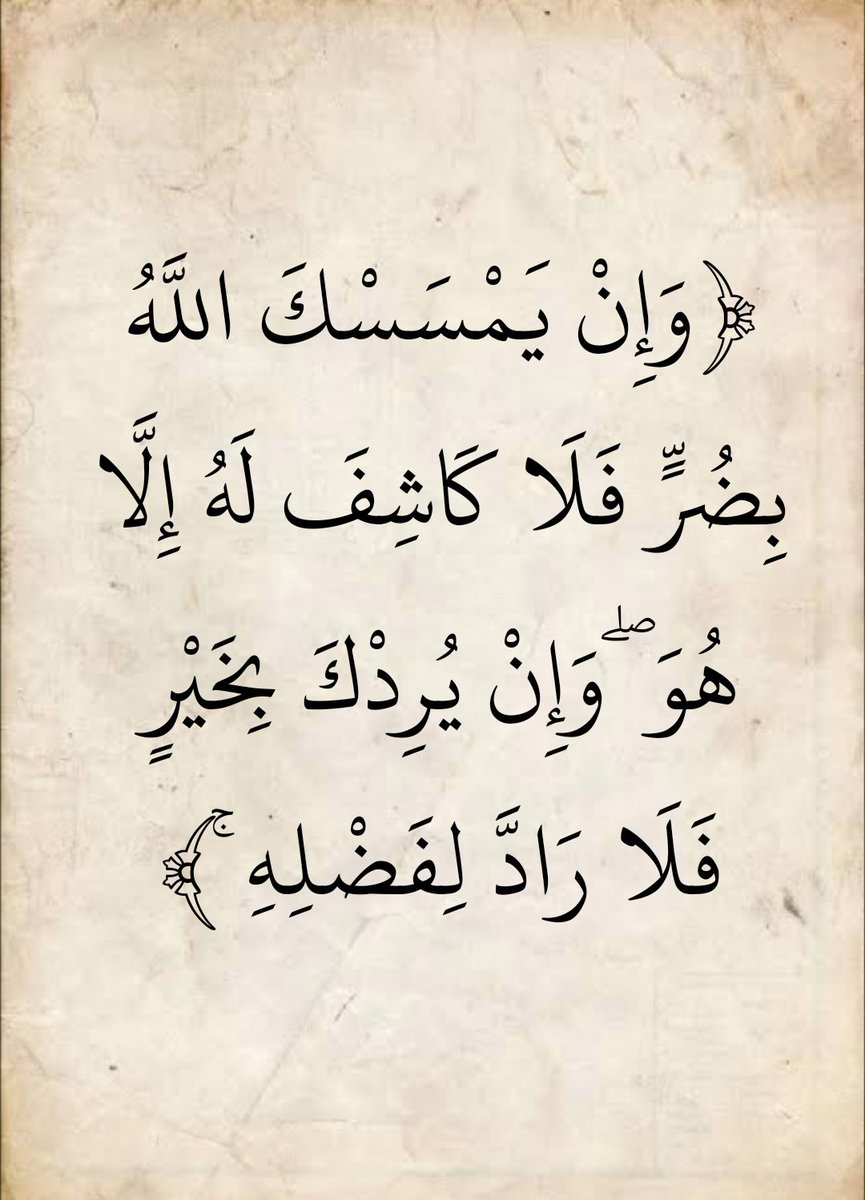 ﴿وَإِنْ يَمْسَسْكَ اللَّهُ
بِضُرٍّ فَلَا كَاشِفَ لَهُ إِلَّا
هُوَ ۖ وَإِنْ يُرِدْكَ بِخَيْرٍ
فَلَا رَادَّ لِفَضْلِهِ ۚ﴾